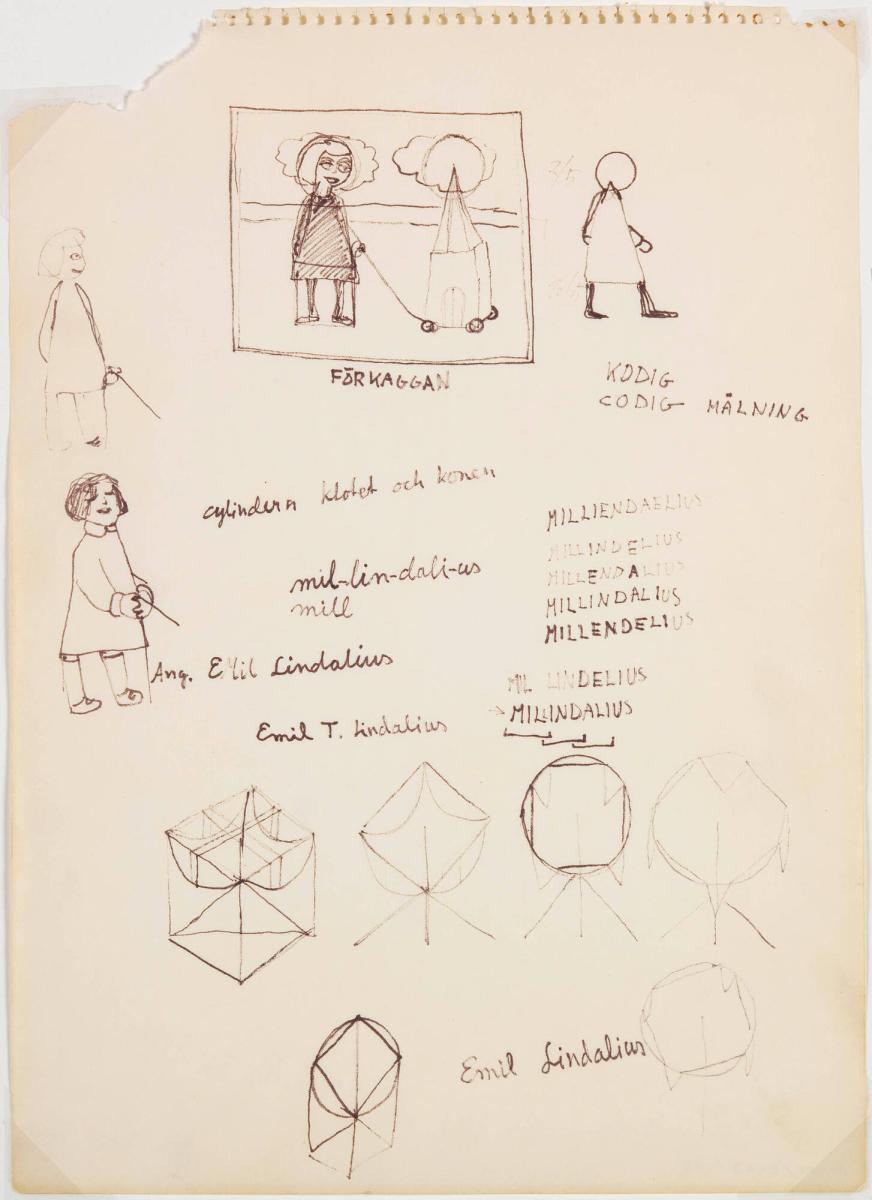 3/5
3/5
FÖRKAGGAN
KODIG
CODIG MÅLNING
cylindern klotet och konen
MILLIENDAELIUS
MILLINDELIUS
mil-lin-dali-us
MILLENDALIUS
mill
MILLINDALIUS
MILLENDELIUS
Ang. Emil Lindalius
MIL LINDELIUS
→ MILLINDALIUS
Emil T. Lindalius
Emil Lindalius